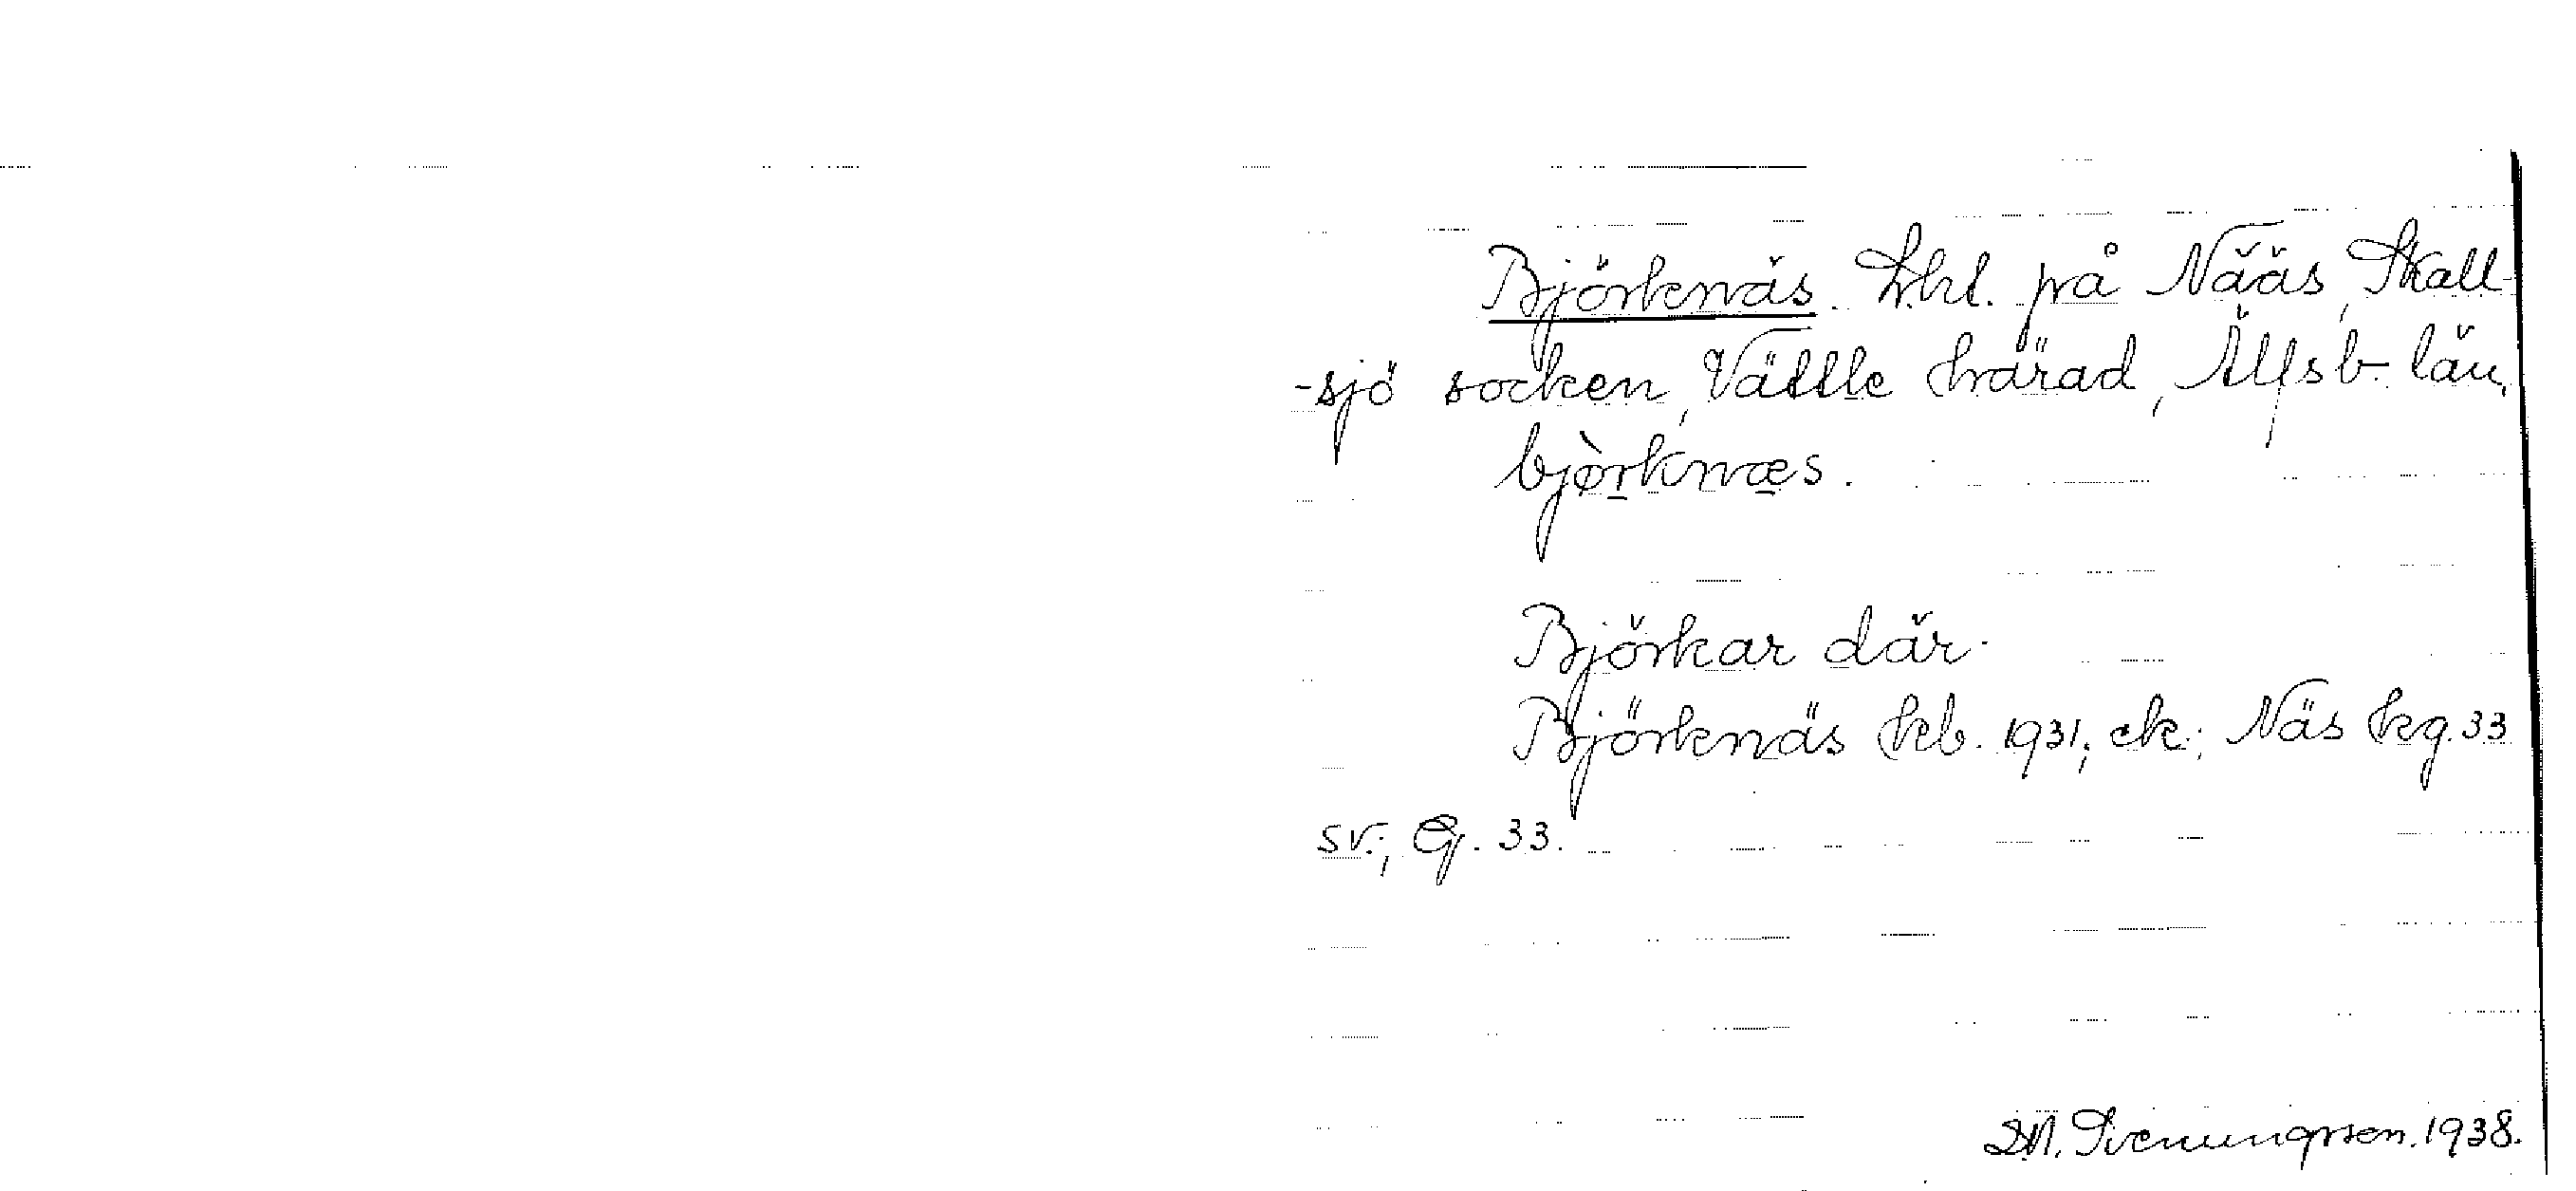 Björknäs. Lht. på Nääs, Skall-
-sjö socken, Vättle härad, Älfsb. län.
bjòrknæs.
Björkar där.
Björknäs kb. 1931; ek.; Näs hg. 33
sv.; G. 33.
M. Svenungsson. 1938.